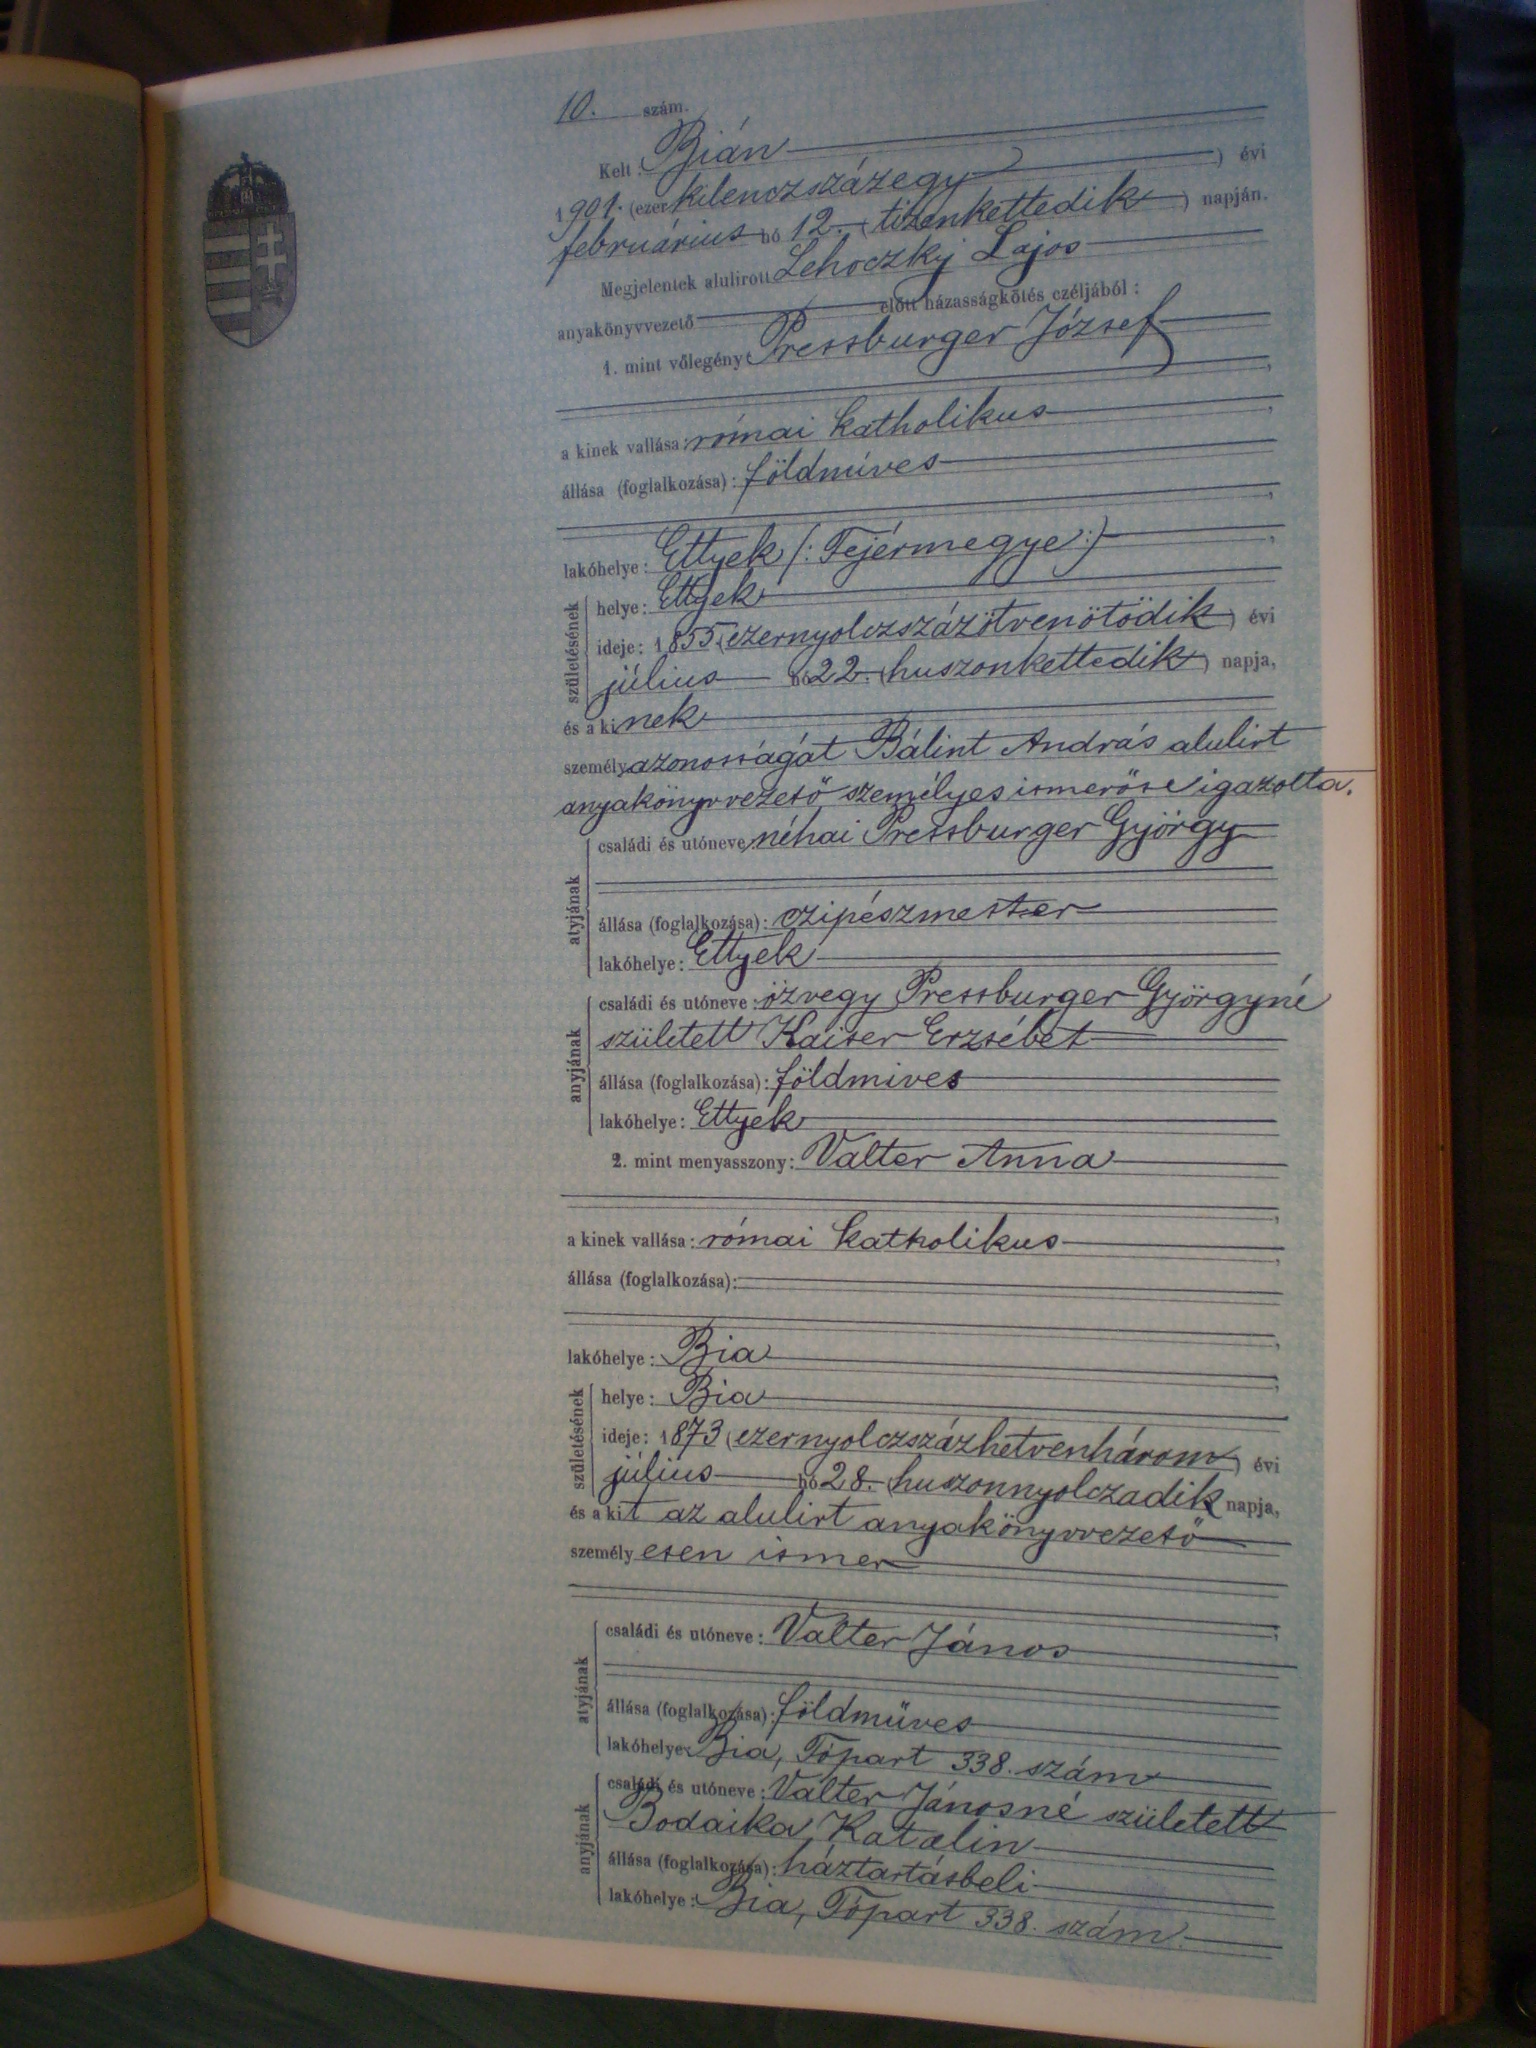 10. szám.
Kelt: Bián
1901. (ezer kilenczszázegy) évi
február​ius hó 12. (tizenkettedik) napján.
Megjelentek alulirott Lehoczky Lajos
anyakönyvvezető előtt házasságkötés czéljából:
1. mint vőlegény: Pressburger József
a kinek vallása: római katholikus
állása (foglalkozása): földmíves
lakóhelye: Ettyek (: Fejérmegye :)
születésének
helye: Ettyek
ideje: 1855. (ezernyolczszázötvenötödik) évi
július hó 22. (huszonkettedik) napja,
és a kinek
személyazonosságát Bálint András alulirt
anyakönyvvezető személyes ismerőse igazolta.
atyjának
családi és utóneve: néhai Pressburger György
állása (foglalkozása): czipészmester
lakóhelye: Ettyek
anyjának
családi és utóneve: özvegy Pressburger Györgyné
született Kaiser Erzsébet
állása (foglalkozása): földmives
lakóhelye: Ettyek
2. mint menyasszony: Valter Anna
a kinek vallása: római katholikus
állása (foglalkozása):
lakóhelye: Bia
születésének
helye: Bia
ideje: 1873 (ezernyolczszázhetvenhárom) évi
július hó 28. (huszonnyolczadik napja,
és a kit az alulirt anyakönyvvezető
személyesen ismer
atyjának
családi és utóneve: Valter János
állása (foglalkozása): földműves
lakóhelye: Bia, Tópart 338. szám
anyjának
családi és utóneve: Valter Jánosné született
Bodaika Katalin
állása (foglalkozása): háztartásbeli
lakóhelye: Bia, Tópart 338. szám.